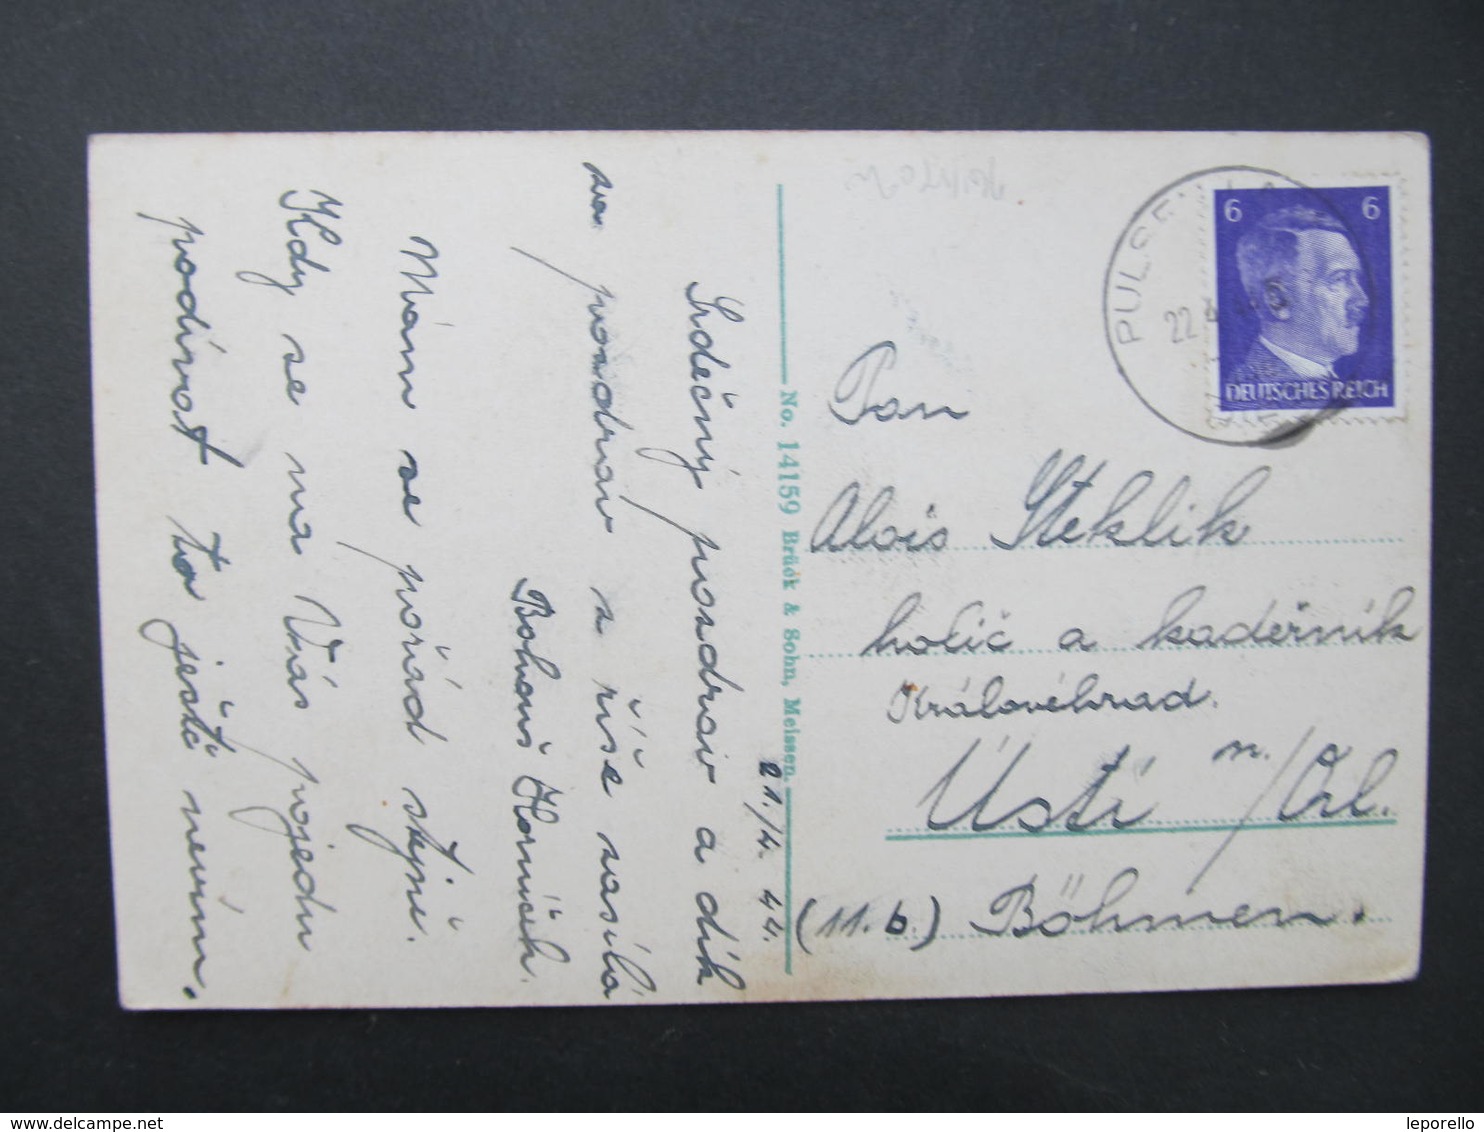 21./4. 44.
Srdečný pozdrav a dík
za pozdrav z říše zasílá
Bohouš Horníček.
Mám se pořád stejně.
Kdy se na Vás pojedu
podívat to ještě nevím.
No. 14159 Brück & Sohn, Meissen.
PULSN
22.4.44
6 6
DEUTSCHES REICH
Pan
Alois Steklik
holič a kadeřník
Královéhrad.
Ústí n./Orl.
(11.b.) Böhmen.
www.delcampe.net
leporello